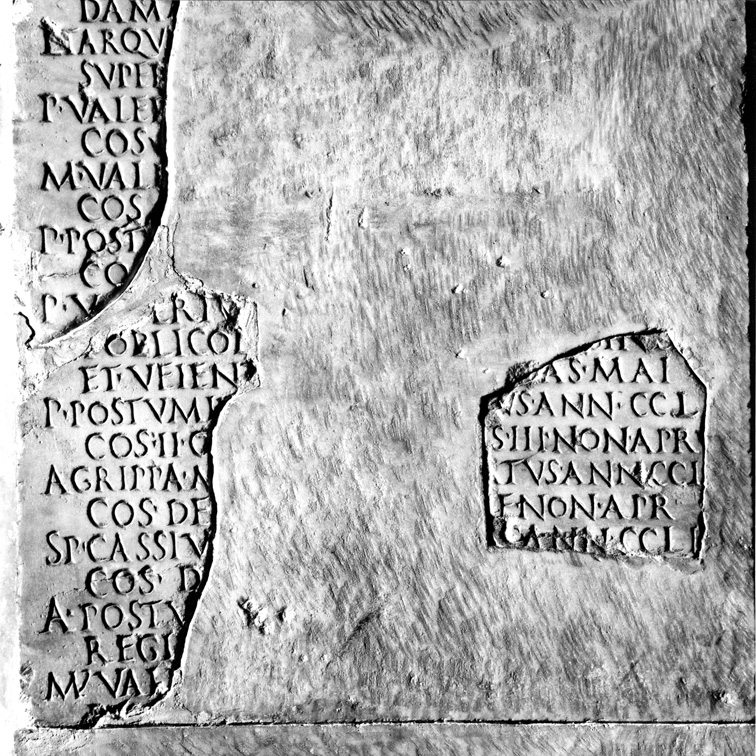 DAM
ARQV
SVPE
P·VALE
COS
M·VAL
COS
P·POST
CO
P·V LERIV
OBLICOL
ET·VEIEN
P·POSTVMI
COS·II·
AGRIPPA·M
COS·DE
SP·CASSIV
COS·D
A·POSTV
REGI
M·VAL
AS·MAI
VS·ANN·CCL
S·IIII·NON·APR
TVS·ANN·CCL
NON·APR
ANN·CCLI